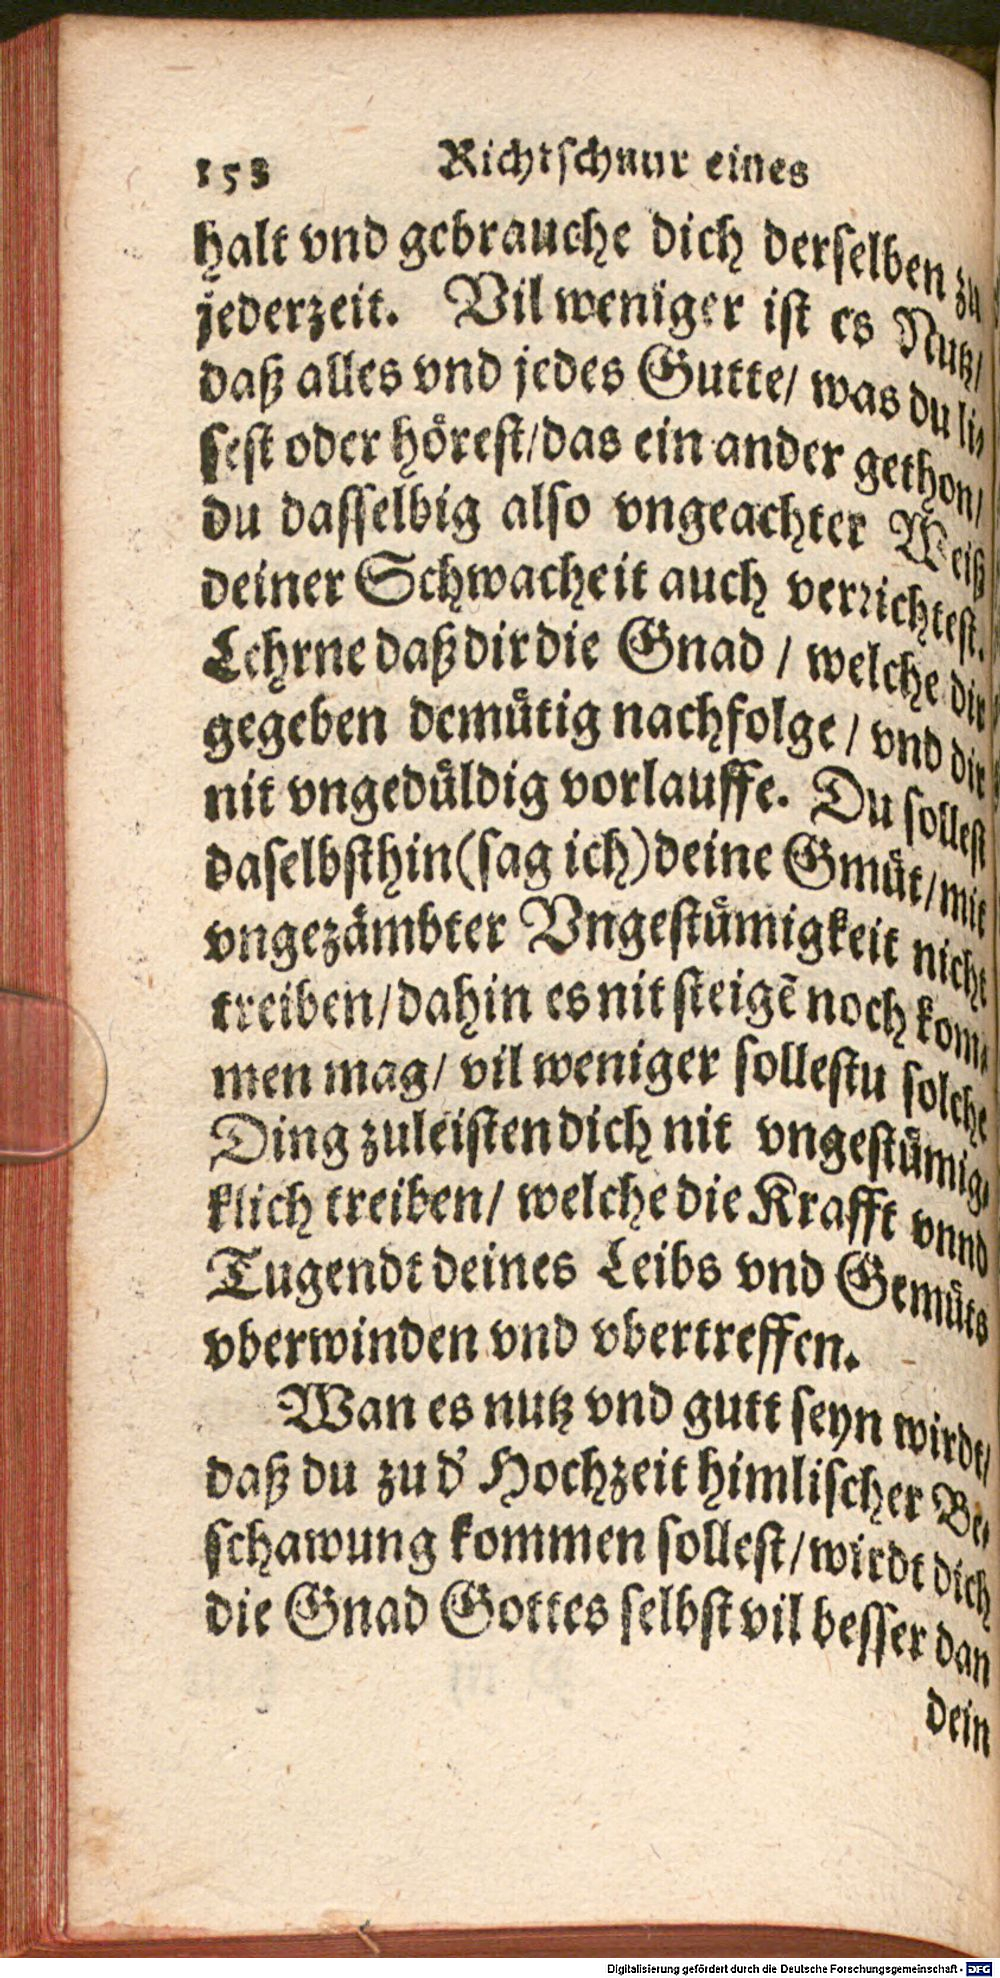 158 Richtschnur eines
halt vnd gebrauche dich derselben zu
jederzeit. Vil weniger ist es Nutz/
daß alles vnd jedes Gutte/ was du li-
sest oder hörest/das ein ander gethon/
du dasselbig also vngeachter Weiß
deiner Schwacheit auch verrichtest.
Lehrne daß dir die Gnad / welche dir
gegeben demütig nachfolge / vnd dir
nit vngedüldig vorlauffe. Du sollest
daselbsthin(sag ich)deine Gmüt/mit
vngezämbter Vngestümigkeit nicht
treiben/dahin es nit steigē noch kom-
men mag/ vil weniger sollestu solche
Ding zuleisten dich nit vngestümig-
klich treiben/ welche die Krafft vnnd
Tugendt deines Leibs vnd Gemüts
vberwinden vnd vbertreffen.
Wan es nutz vnd gutt seyn wirdt/
daß du zu d' Hochzeit himlischer Be-
schawung kommen sollest/wirdt dich
die Gnad Gottes selbst vil besser dan
dein
Digitalisierung gefördert durch die Deutsche Forschungsgemeinschaft - DFG